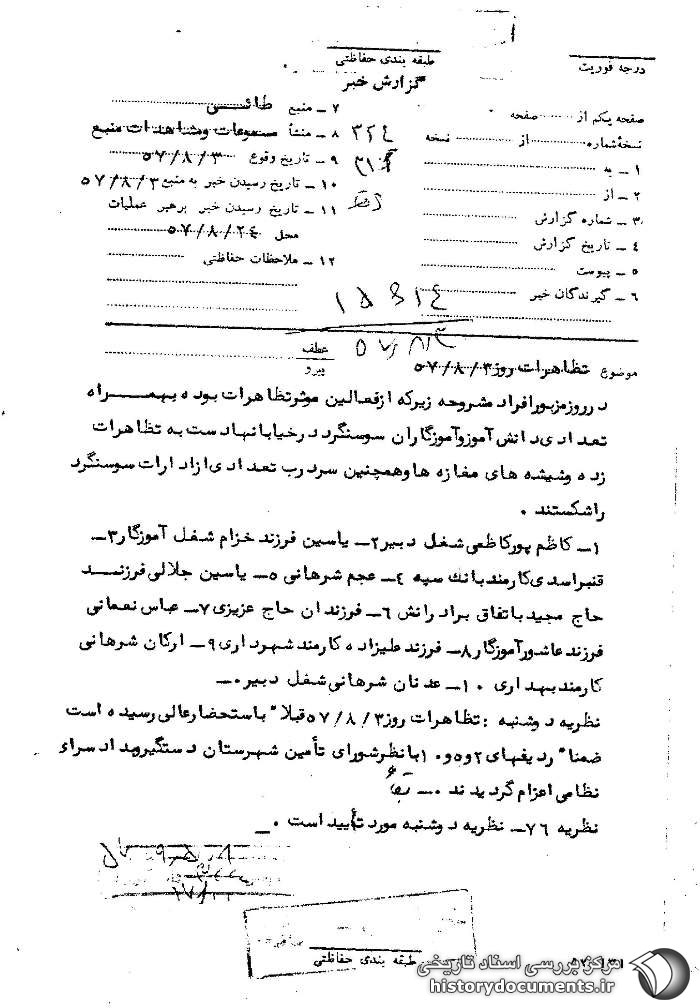 درجه فوریت
طبقه بندی حفاظتی
گزارش خبر
صفحه یکم از ........ صفحه
نسخه شماره ........ از ........ نسخه
۱ ـ به
۲ ـ از
۳ ـ شماره گزارش
۴ ـ تاریخ گزارش
۵ ـ پیوست
۶ ـ گیرندگان خبر
۷ ـ منبع طائی
۸ ـ منشأ مسموعات و مشاهدات منبع
۹ ـ تاریخ وقوع ۵۷/۸/۳
۱۰ ـ تاریخ رسیدن خبر به منبع ۵۷/۸/۳
۱۱ ـ تاریخ رسیدن خبر برهبر عملیات
محل ۵۷/۸/۲۴
۱۲ ـ ملاحظات حفاظتی
۳۲۴
۳۱۲
موضوع تظاهرات روز ۵۷/۸/۳
عطف
پیرو
در روز مزبور افراد مشروحه زیر که از فعالین موثر تظاهرات بوده بهمراه
تعدادی دانش آموز و آموزگاران سوسنگرد در خیابانها دست به تظاهرات
زده و شیشه های مغازه ها و همچنین سردرب تعدادی از ادارات سوسنگرد
را شکستند .
۱ـ کاظم پورکاظمی شغل دبیر ۲ـ یاسین فرزند خزام شغل آموزگار ۳ـ
قنبر اسدی کارمند بانک سپه ۴ـ عجم شرهانی ۵ـ یاسین جلالی فرزند
حاج مجید با تفاق برادرانش ۶ـ فرزندان حاج عزیزی ۷ـ عباس نعمانی
فرزند عاشور آموزگار ۸ـ فرزند علیزاده کارمند شهرداری ۹ـ ارکان شرهانی
کارمند بهداری ۱۰ـ عدنان شرهانی شغل دبیر .ـ
نظریه دوشنبه : تظاهرات روز ۵۷/۸/۳ قبلا" باستحضار عالی رسیده است
ضمنا" ردیفهای ۲ و ۵ و ۱۰ با نظر شورای تأمین شهرستان دستگیر و بدادسرای
نظامی اعزام گردیدند .ـ
نظریه ۷۶ـ نظریه دوشنبه مورد تأیید است .ـ
طبقه بندی حفاظتی
مرکز بررسی اسناد تاریخی
historydocuments.ir